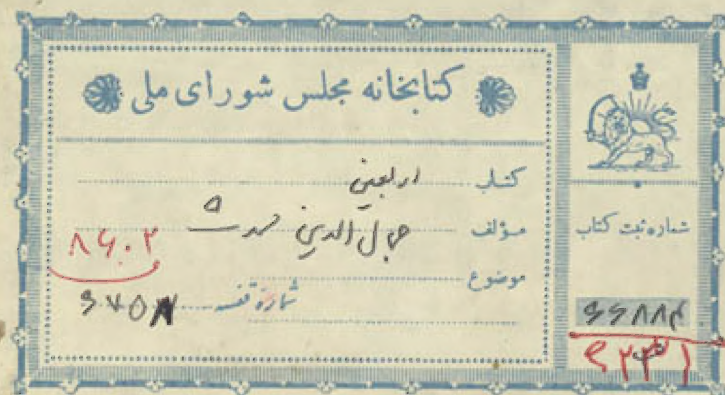 کتابخانه مجلس شورای ملی
کتاب اربعین
مؤلف جمال الدین محدث
موضوع
شماره قفسه
۸۶۰۲
شماره ثبت کتاب
۶۶۸۸۴